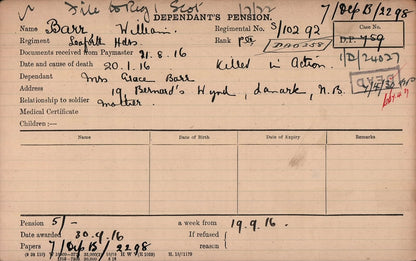 File to Reg. Scot 7/Dep B/2298
DEPENDANT'S PENSION.
Name Barr William. Regimental No. S/10292 Case No.
Regiment Seaforth Hdrs. Rank Pte D.P. 759
Documents received from Paymaster 21.8.16 1/D/24027
Date and cause of death 20.1.16 Killed in Action. DEAD
Dependant Mrs Grace Barr
Address 19, Bernard's Wynd, Lanark, N.B.
Relationship to soldier mother.
Medical Certificate
Children:—
Name Date of Birth. Date of Expiry. Remarks.
Pension 5/- a week from 19.9.16
Date awarded 30.9.16 If refused
Papers 7/Dep B/2298 reason